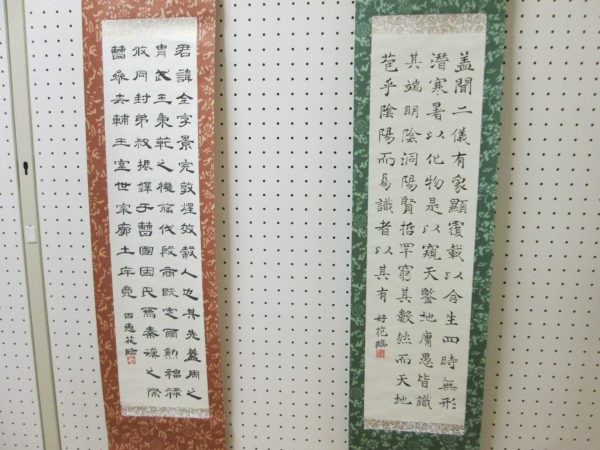 盖聞二儀有象顯覆載以含生四時無形
潜寒暑以化物是以窺天鑒地庸愚皆識
其端明陰洞陽賢哲罕窮其數然而天地
苞乎陰陽而易識者以其有
好花臨
君諱全字景完敦煌效穀人也其先蓋周之
胄武王秉乾之機翦伐殷商既定爾勳福祿
攸同封弟叔振鐸于曹國因氏焉秦漢之際
曹參夾輔王室世宗廓土斥竟
百惠花臨